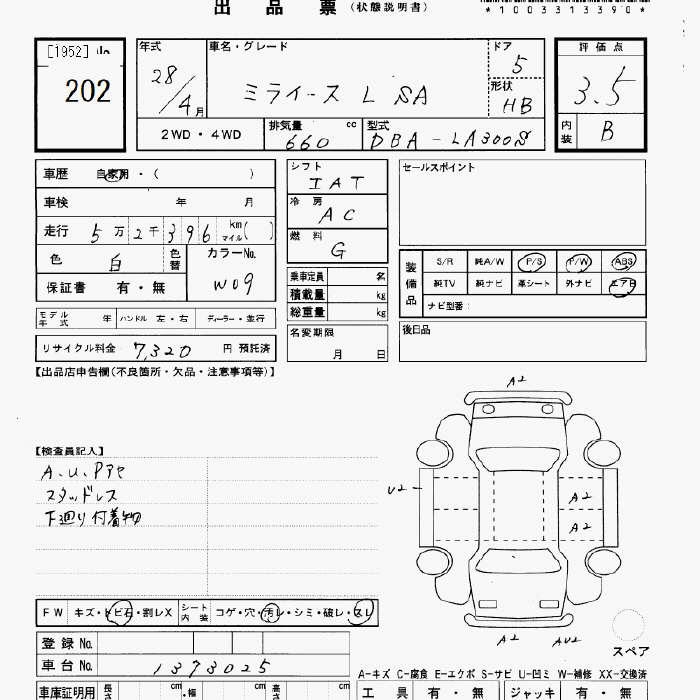 出 品 票 (状態説明書)
*1003313390*
[1952]
202
年式
28/4月
車名・グレード
ミライース L SA
ドア
5
形状
HB
評価点
3.5
内装
B
2WD・4WD
排気量
660
cc
型式
DBA-LA300S
車歴 自家用・( )
車検 年 月
走行 5万2千396 km マイル( )
色 白 色替
カラーNo.
W09
保証書 有・無
モデル年式 年 ハンドル 左・右 ディーラー・並行
リサイクル料金 7,320 円 預託済
シフト
IAT
冷房
AC
燃料
G
乗車定員 名
積載量 kg
総重量 kg
名変期限
月 日
セールスポイント
装備品
S/R 純A/W P/S P/W ABS
純TV 純ナビ 革シート 外ナビ エアB
ナビ型番:
後日品
【出品店申告欄(不良箇所・欠品・注意事項等)】
【検査員記入】
A.U.Pアセ
スタッドレス
下廻り付着物
A2
U2
A2
A2
A2
AU2
スペア
FW キズ・トビ石・割レX シート内装 コゲ・穴・汚レ・シミ・破レ・スレ
登録No.
車台No. 1373025
A-キズ C-腐食 E-エクボ S-サビ U-凹ミ W-補修 XX-交換済
車庫証明用 長さ cm・幅 cm 高さ cm
工具 有・無 ジャッキ 有・無